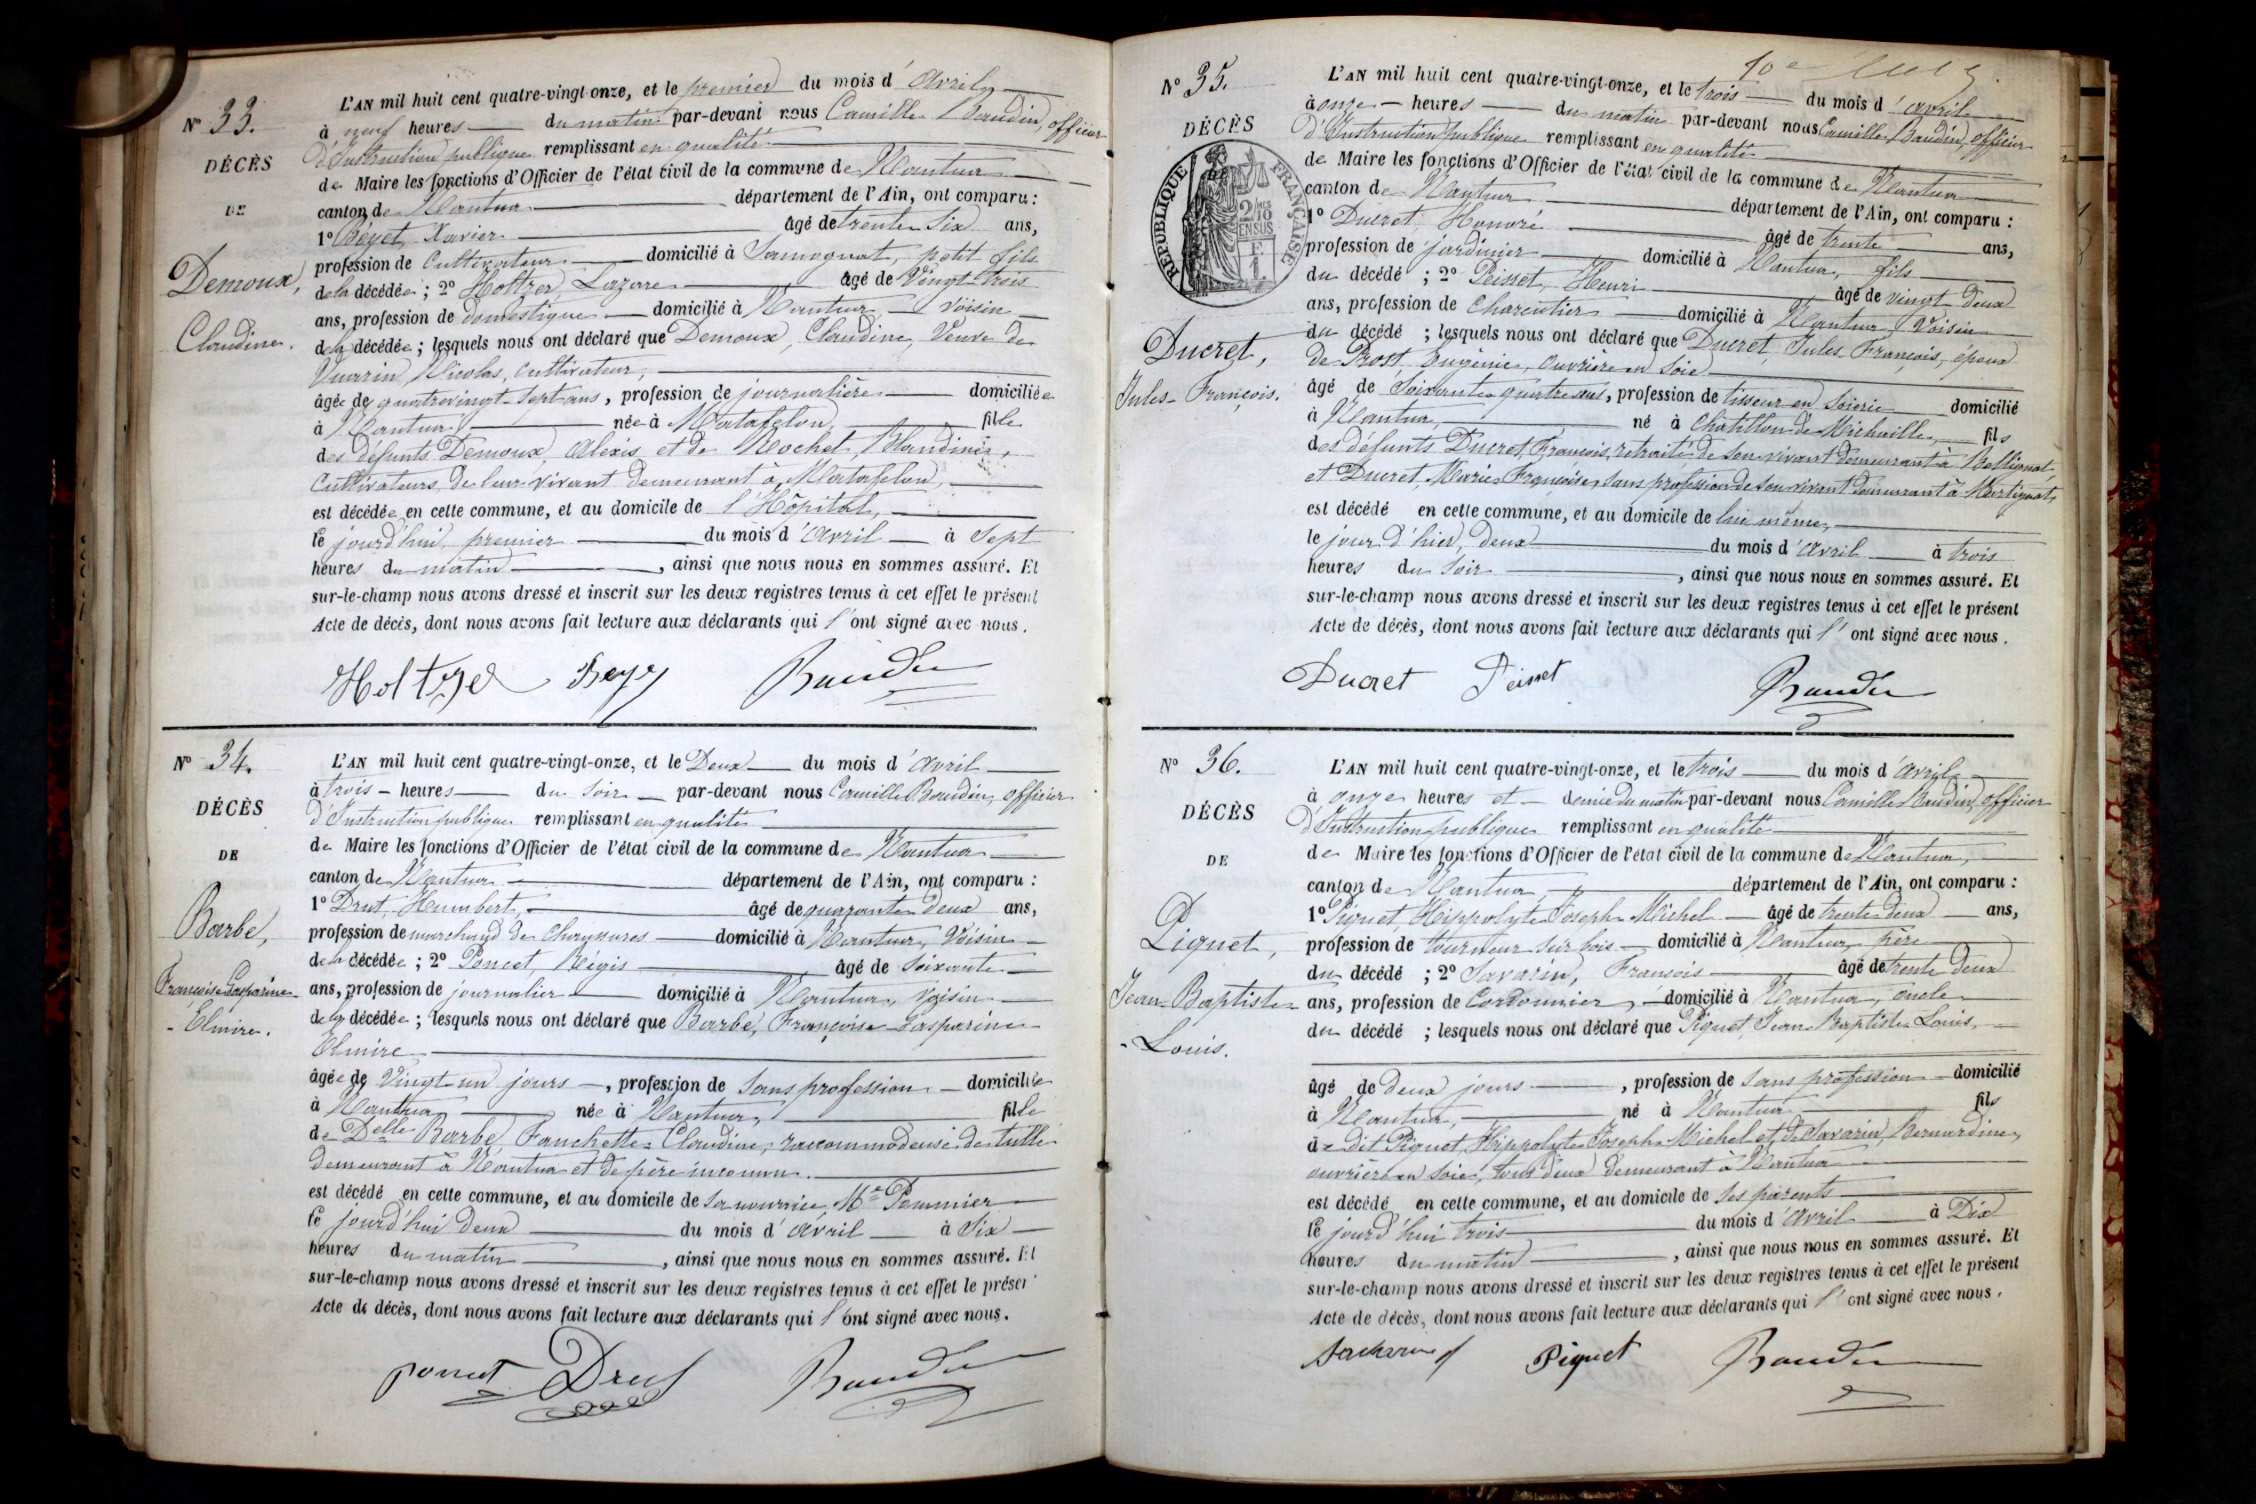 N° 33.
DÉCÈS
DE
Demoux,
Claudine.
L'AN mil huit cent quatre-vingt-onze, et le premier du mois d'avril
à neuf heures du matin par-devant nous Camille Baudin, officier
d'Instruction publique remplissant en qualité
de Maire les fonctions d'Officier de l'état civil de la commune de Nantua
canton de Nantua département de l'Ain, ont comparu :
1° Béyet, Xavier âgé de trente six ans,
profession de Cultivateur domicilié à Samognat, petit fils
de la décédée ; 2° Holtzer, Lazare âgé de Vingt-trois
ans, profession de domestique domicilié à Nantua, Voisin
de la décédée ; lesquels nous ont déclaré que Demoux, Claudine, Veuve de
Vuarin, Nicolas, cultivateur,
âgée de quatrevingt-sept ans, profession de journalière domiciliée
à Nantua née à Matafelon, fille
des défunts Demoux, Alexis et de Rochet, Claudine,
Cultivateurs, de leur vivant demeurant à Matafelon,
est décédée en cette commune, et au domicile de l'Hôpital,
le jourd'hui, premier du mois d'avril à Sept
heures du matin, ainsi que nous nous en sommes assuré. Et
sur-le-champ nous avons dressé et inscrit sur les deux registres tenus à cet effet le présent
Acte de décès, dont nous avons fait lecture aux déclarants qui l'ont signé avec nous.
Baudin
N° 34.
DÉCÈS
DE
Barbe,
Françoise-Gasparine-
-Elmire.
L'AN mil huit cent quatre-vingt-onze, et le Deux du mois d'avril
à trois heures du soir par-devant nous Camille Baudin, officier
d'Instruction publique remplissant en qualité
de Maire les fonctions d'Officier de l'état civil de la commune de Nantua
canton de Nantua département de l'Ain, ont comparu :
1° Drut, Humbert, âgé de quarante deux ans,
profession de marchand de chaussures domicilié à Nantua, Voisin
de la décédée ; 2° Poncet Régis âgé de soixante
ans, profession de journalier domicilié à Nantua, voisin
de la décédée ; lesquels nous ont déclaré que Barbe, Françoise Gasparine
Elmire
âgée de Vingt-un jours, profession de Sans profession domiciliée
à Nantua née à Nantua, fille
de Delle Barbe, Fanchette-Claudine, raccommodeuse de tulle
demeurant à Nantua et de père inconnu.
est décédé en cette commune, et au domicile de sa nourrice Me Pommier
le jourd'hui deux du mois d'avril à Six
heures du matin, ainsi que nous nous en sommes assuré. Et
sur-le-champ nous avons dressé et inscrit sur les deux registres tenus à cet effet le présent
Acte de décès, dont nous avons fait lecture aux déclarants qui l'ont signé avec nous.
Poncet Drut Baudin
10e
N° 35.
DÉCÈS
RÉPUBLIQUE FRANÇAISE
2/10 EN SUS
Ducret,
Jules-François.
L'AN mil huit cent quatre-vingt-onze, et le trois du mois d'avril
à onze heures du matin par-devant nous Camille Baudin, officier
d'Instruction publique remplissant en qualité
de Maire les fonctions d'Officier de l'état civil de la commune de Nantua
canton de Nantua département de l'Ain, ont comparu :
1° Ducret, Honoré âgé de trente ans,
profession de jardinier domicilié à Nantua, fils
du décédé ; 2° Peisset, Henri âgé de vingt deux
ans, profession de charcutier domicilié à Nantua, Voisin
du décédé ; lesquels nous ont déclaré que Ducret, Jules François, époux
de Prost, Eugénie, ouvrière en soie
âgé de soixante quatre ans, profession de tisseur en soierie domicilié
à Nantua, né à Châtillon-de-Michaille, fils
des défunts Ducret, François, retraité de son vivant demeurant à Bellignat
et Ducret, Marie Françoise, sans profession de son vivant demeurant à Martignat,
est décédé en cette commune, et au domicile de lui même,
le jour d'hier, deux du mois d'avril à trois
heures du soir, ainsi que nous nous en sommes assuré. Et
sur-le-champ nous avons dressé et inscrit sur les deux registres tenus à cet effet le présent
Acte de décès, dont nous avons fait lecture aux déclarants qui l'ont signé avec nous.
Ducret Peisset Baudin
N° 36.
DÉCÈS
DE
Piquet,
Jean-Baptiste-
-Louis.
L'AN mil huit cent quatre-vingt-onze, et le trois du mois d'avril
à onze heures et demie du matin par-devant nous Camille Baudin, officier
d'Instruction publique remplissant en qualité
de Maire les fonctions d'Officier de l'état civil de la commune de Nantua,
canton de Nantua, département de l'Ain, ont comparu :
1° Piquet, Hippolyte Joseph Michel âgé de trente deux ans,
profession de tourneur sur bois domicilié à Nantua, père
du décédé ; 2° Savarin, François âgé de trente deux
ans, profession de Cordonnier, domicilié à Nantua, oncle
du décédé ; lesquels nous ont déclaré que Piquet, Jean-Baptiste Louis,
âgé de deux jours, profession de sans profession domicilié
à Nantua, né à Nantua fils
de dit Piquet, Hippolyte Joseph Michel et de Savarin, Bernardine,
ouvrière en soie, tous deux demeurant à Nantua
est décédé en cette commune, et au domicile de ses parents
le jourd'hui trois du mois d'avril à Dix
heures du matin, ainsi que nous nous en sommes assuré. Et
sur-le-champ nous avons dressé et inscrit sur les deux registres tenus à cet effet le présent
Acte de décès, dont nous avons fait lecture aux déclarants qui l'ont signé avec nous.
Piquet Baudin